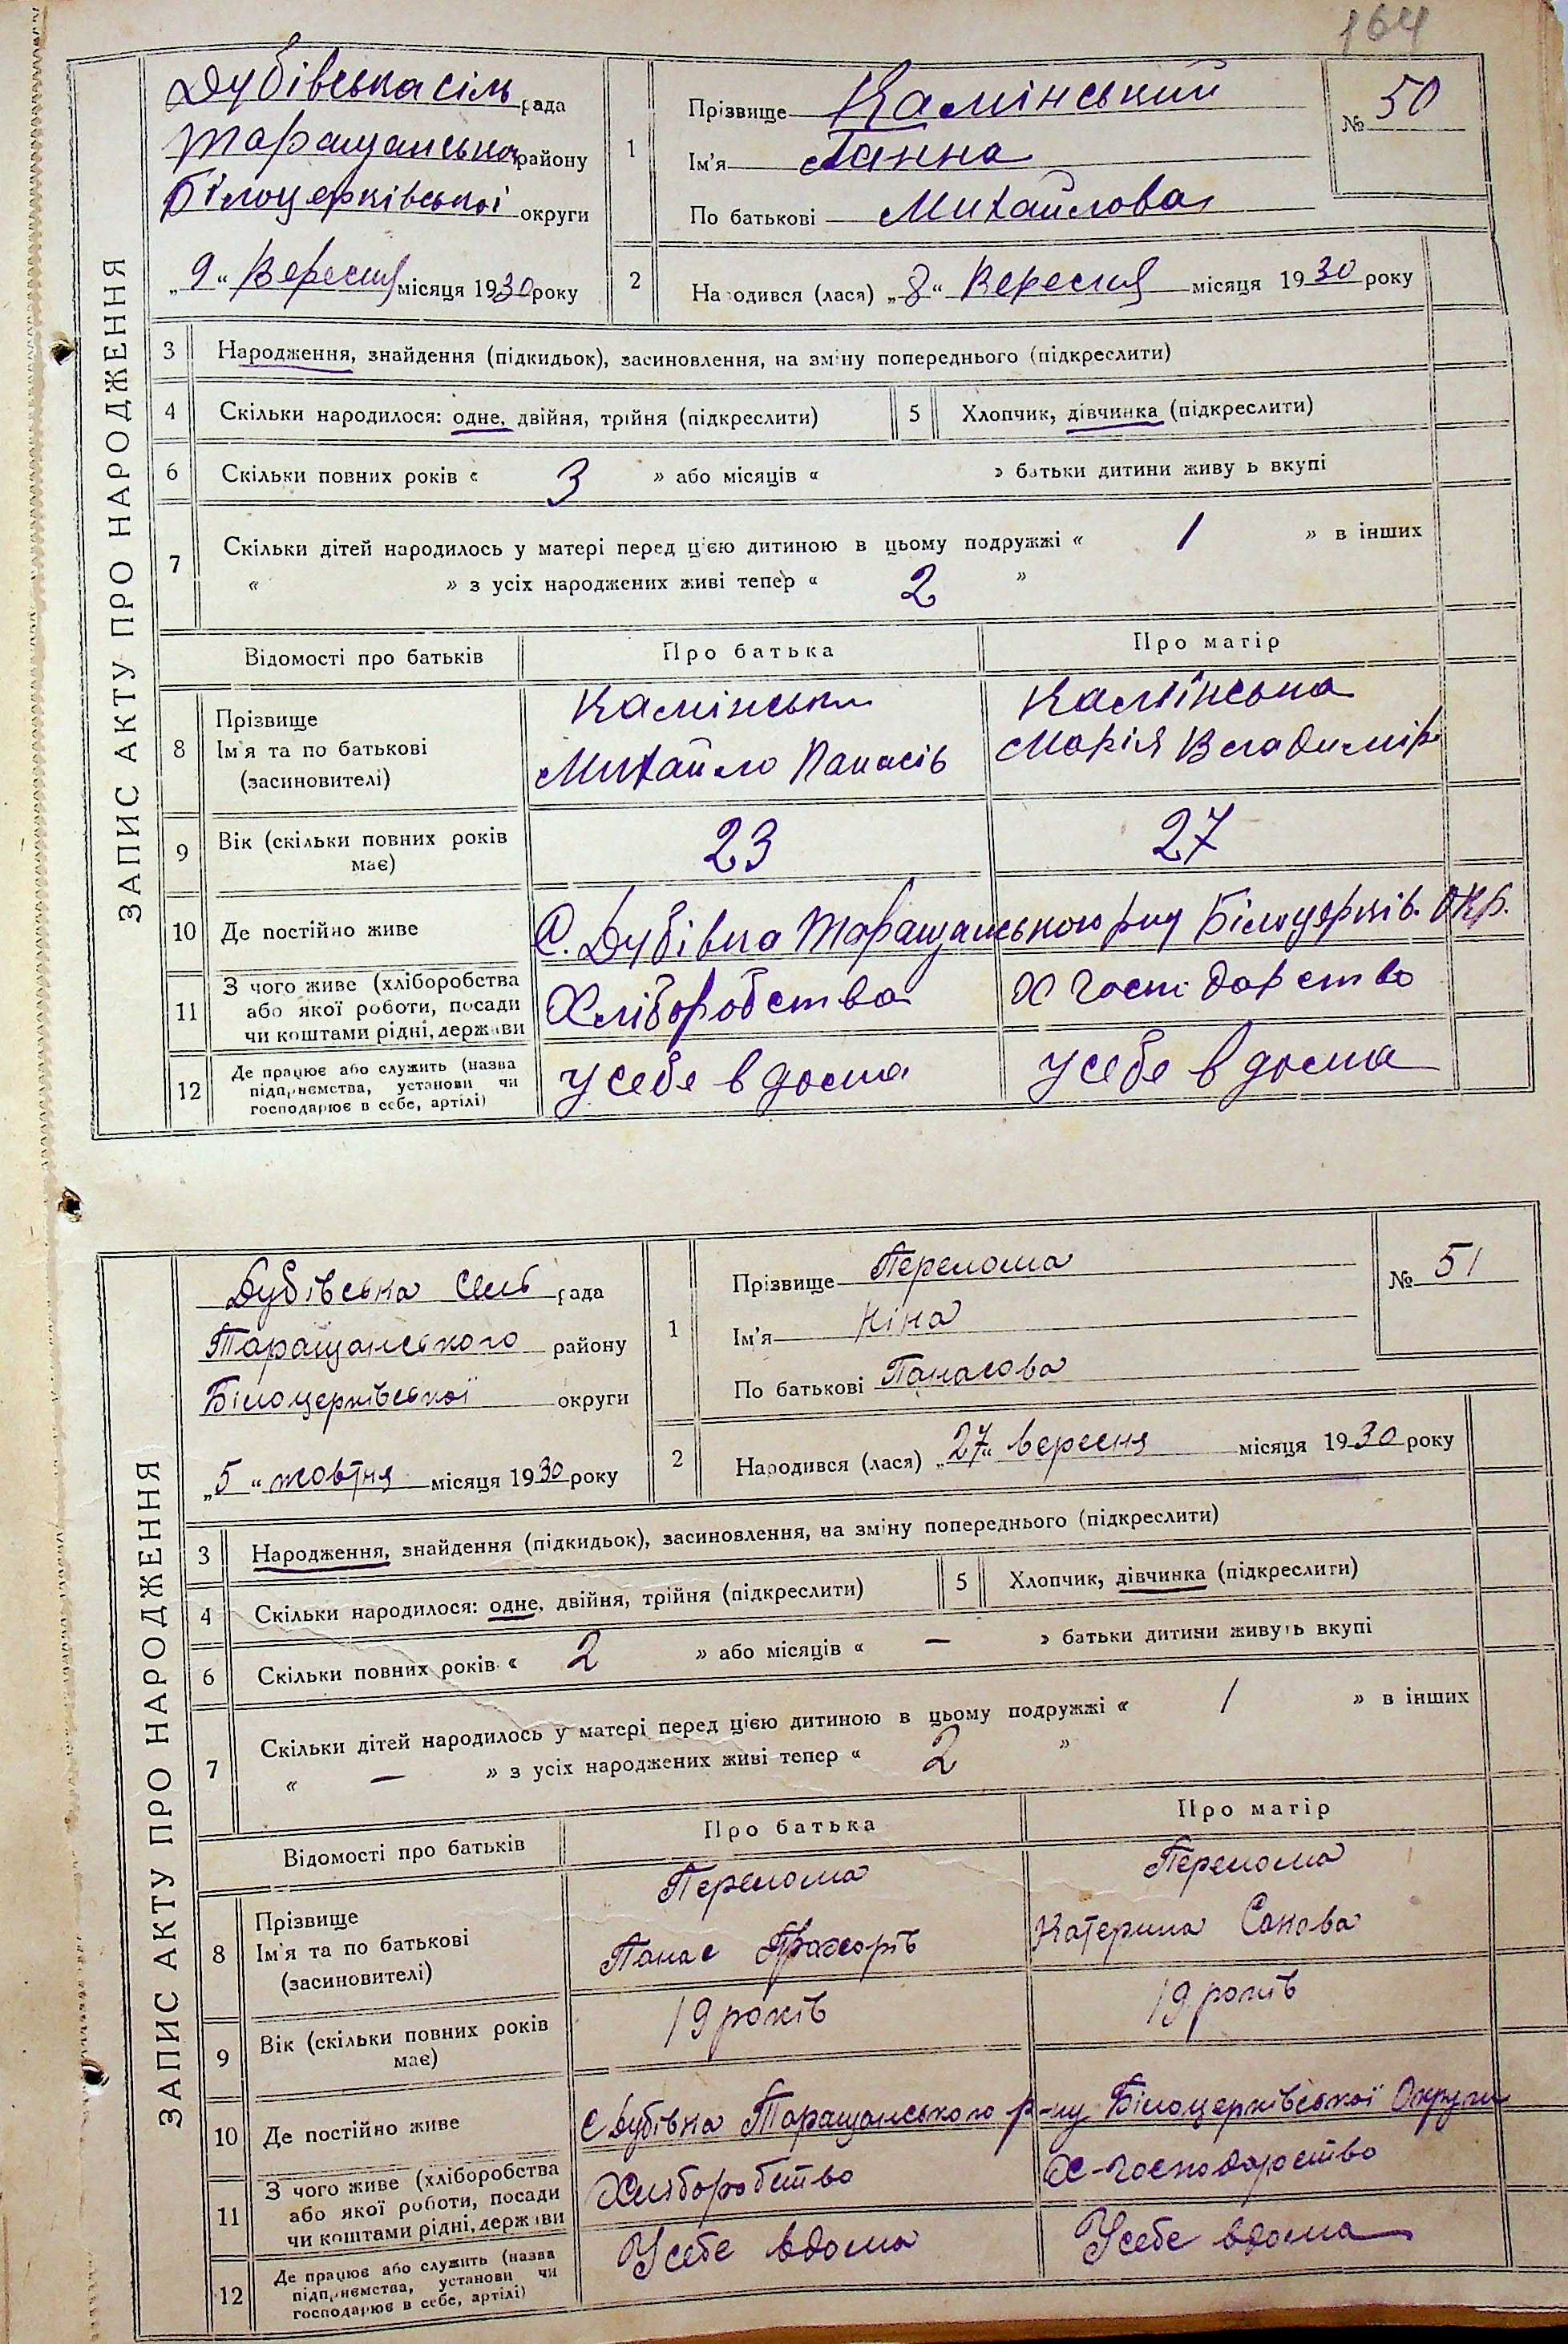 164
ЗАПИС АКТУ ПРО НАРОДЖЕННЯ
Дубівська сіль рада
Таращанська району
Білоцерківської округи
„9“ Вересня місяця 1930 року
1
Прізвище Камінський
Ім'я Ганна
По батькові Михайлова
№ 50
2
Народився (лася) „8“ Вересня місяця 1930 року
3 Народження, знайдення (підкидьок), засиновлення, на зміну попереднього (підкреслити)
4 Скільки народилося: одне, двійня, трійня (підкреслити) 5 Хлопчик, дівчинка (підкреслити)
6 Скільки повних років « 3 » або місяців « » батьки дитини живу ь вкупі
7 Скільки дітей народилось у матері перед цією дитиною в цьому подружжі « 1 » в інших
« » з усіх народжених живі тепер « 2 »
Відомості про батьків Про батька Про матір
8 Прізвище
Ім'я та по батькові
(засиновителі)
Камінськи
Михайло Панасів
Камінська
Марія Владимір
9 Вік (скільки повних років
має)
23 27
10 Де постійно живе С. Дубівка Таращанського рну Білоцерків. Окр.
11 З чого живе (хліборобства
або якої роботи, посади
чи коштами рідні, держави
Хліборобства Х господарство
12 Де працює або служить (назва
підприємства, установи чи
господарює в себе, артілі)
У себе в дома У себе в дома
ЗАПИС АКТУ ПРО НАРОДЖЕННЯ
Дубівська Сіль рада
Таращанського району
Білоцерківської округи
„5“ жовтня місяця 1930 року
1
Прізвище Перелома
Ім'я Ніна
По батькові Панасова
№ 51
2
Народився (лася) „27“ вересня місяця 1930 року
3 Народження, знайдення (підкидьок), засиновлення, на зміну попереднього (підкреслити)
4 Скільки народилося: одне, двійня, трійня (підкреслити) 5 Хлопчик, дівчинка (підкреслити)
6 Скільки повних років « 2 » або місяців « — » батьки дитини живуть вкупі
7 Скільки дітей народилось у матері перед цією дитиною в цьому подружжі « 1 » в інших
« — » з усіх народжених живі тепер « 2 »
Відомості про батьків Про батька Про матір
8 Прізвище
Ім'я та по батькові
(засиновителі)
Перелома
Панас
Перелома
Катерина
9 Вік (скільки повних років
має)
19 років 19 років
10 Де постійно живе С Дубівка Таращанського р-ну Білоцерківської Округи
11 З чого живе (хліборобства
або якої роботи, посади
чи коштами рідні, держави
Хліборобство Х-господарство
12 Де працює або служить (назва
підприємства, установи чи
господарює в себе, артілі)
Усебе вдома Усебе вдома